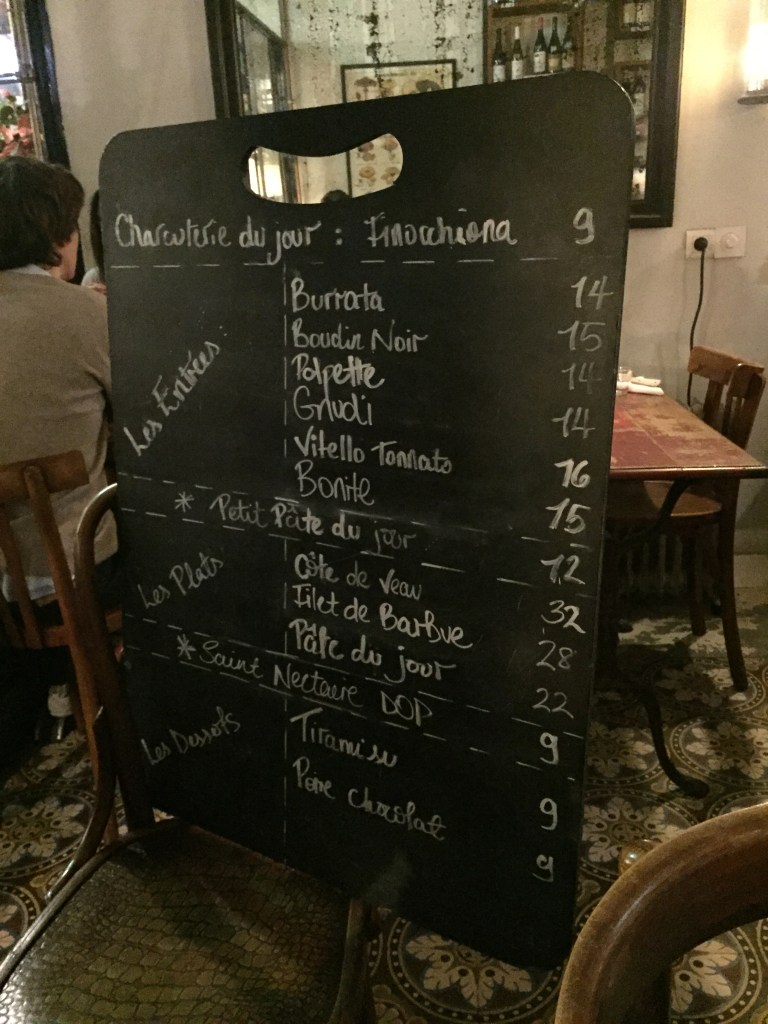 Charcuterie du jour : Finocchiona 9
Les Entrées
Burrata 14
Boudin Noir 15
Polpette 14
Gnudi 14
Vitello Tonnato 16
Bonite 15
* Petit Pâte du jour 12
Les Plats
Côte de Veau 32
Filet de Barbue 28
Pâte du jour 22
* Saint Nectaire DOP 9
Les Desserts
Tiramisu 9
Poire chocolat 9